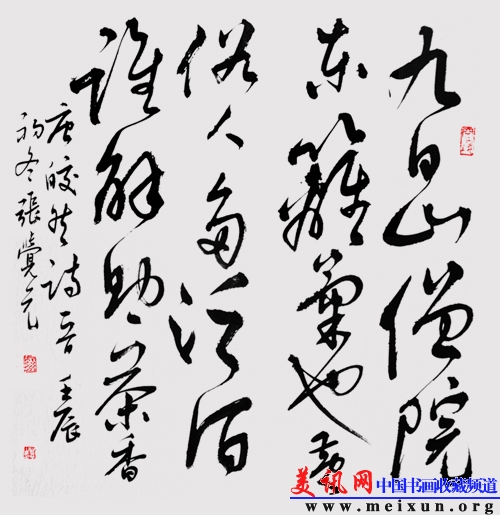 九日山僧院
东籬菊也黄
俗人多泛酒
誰解助茶香
唐皎然诗一首 壬辰
初冬張覺元
美讯网 中国书画收藏频道
www.meixun.org